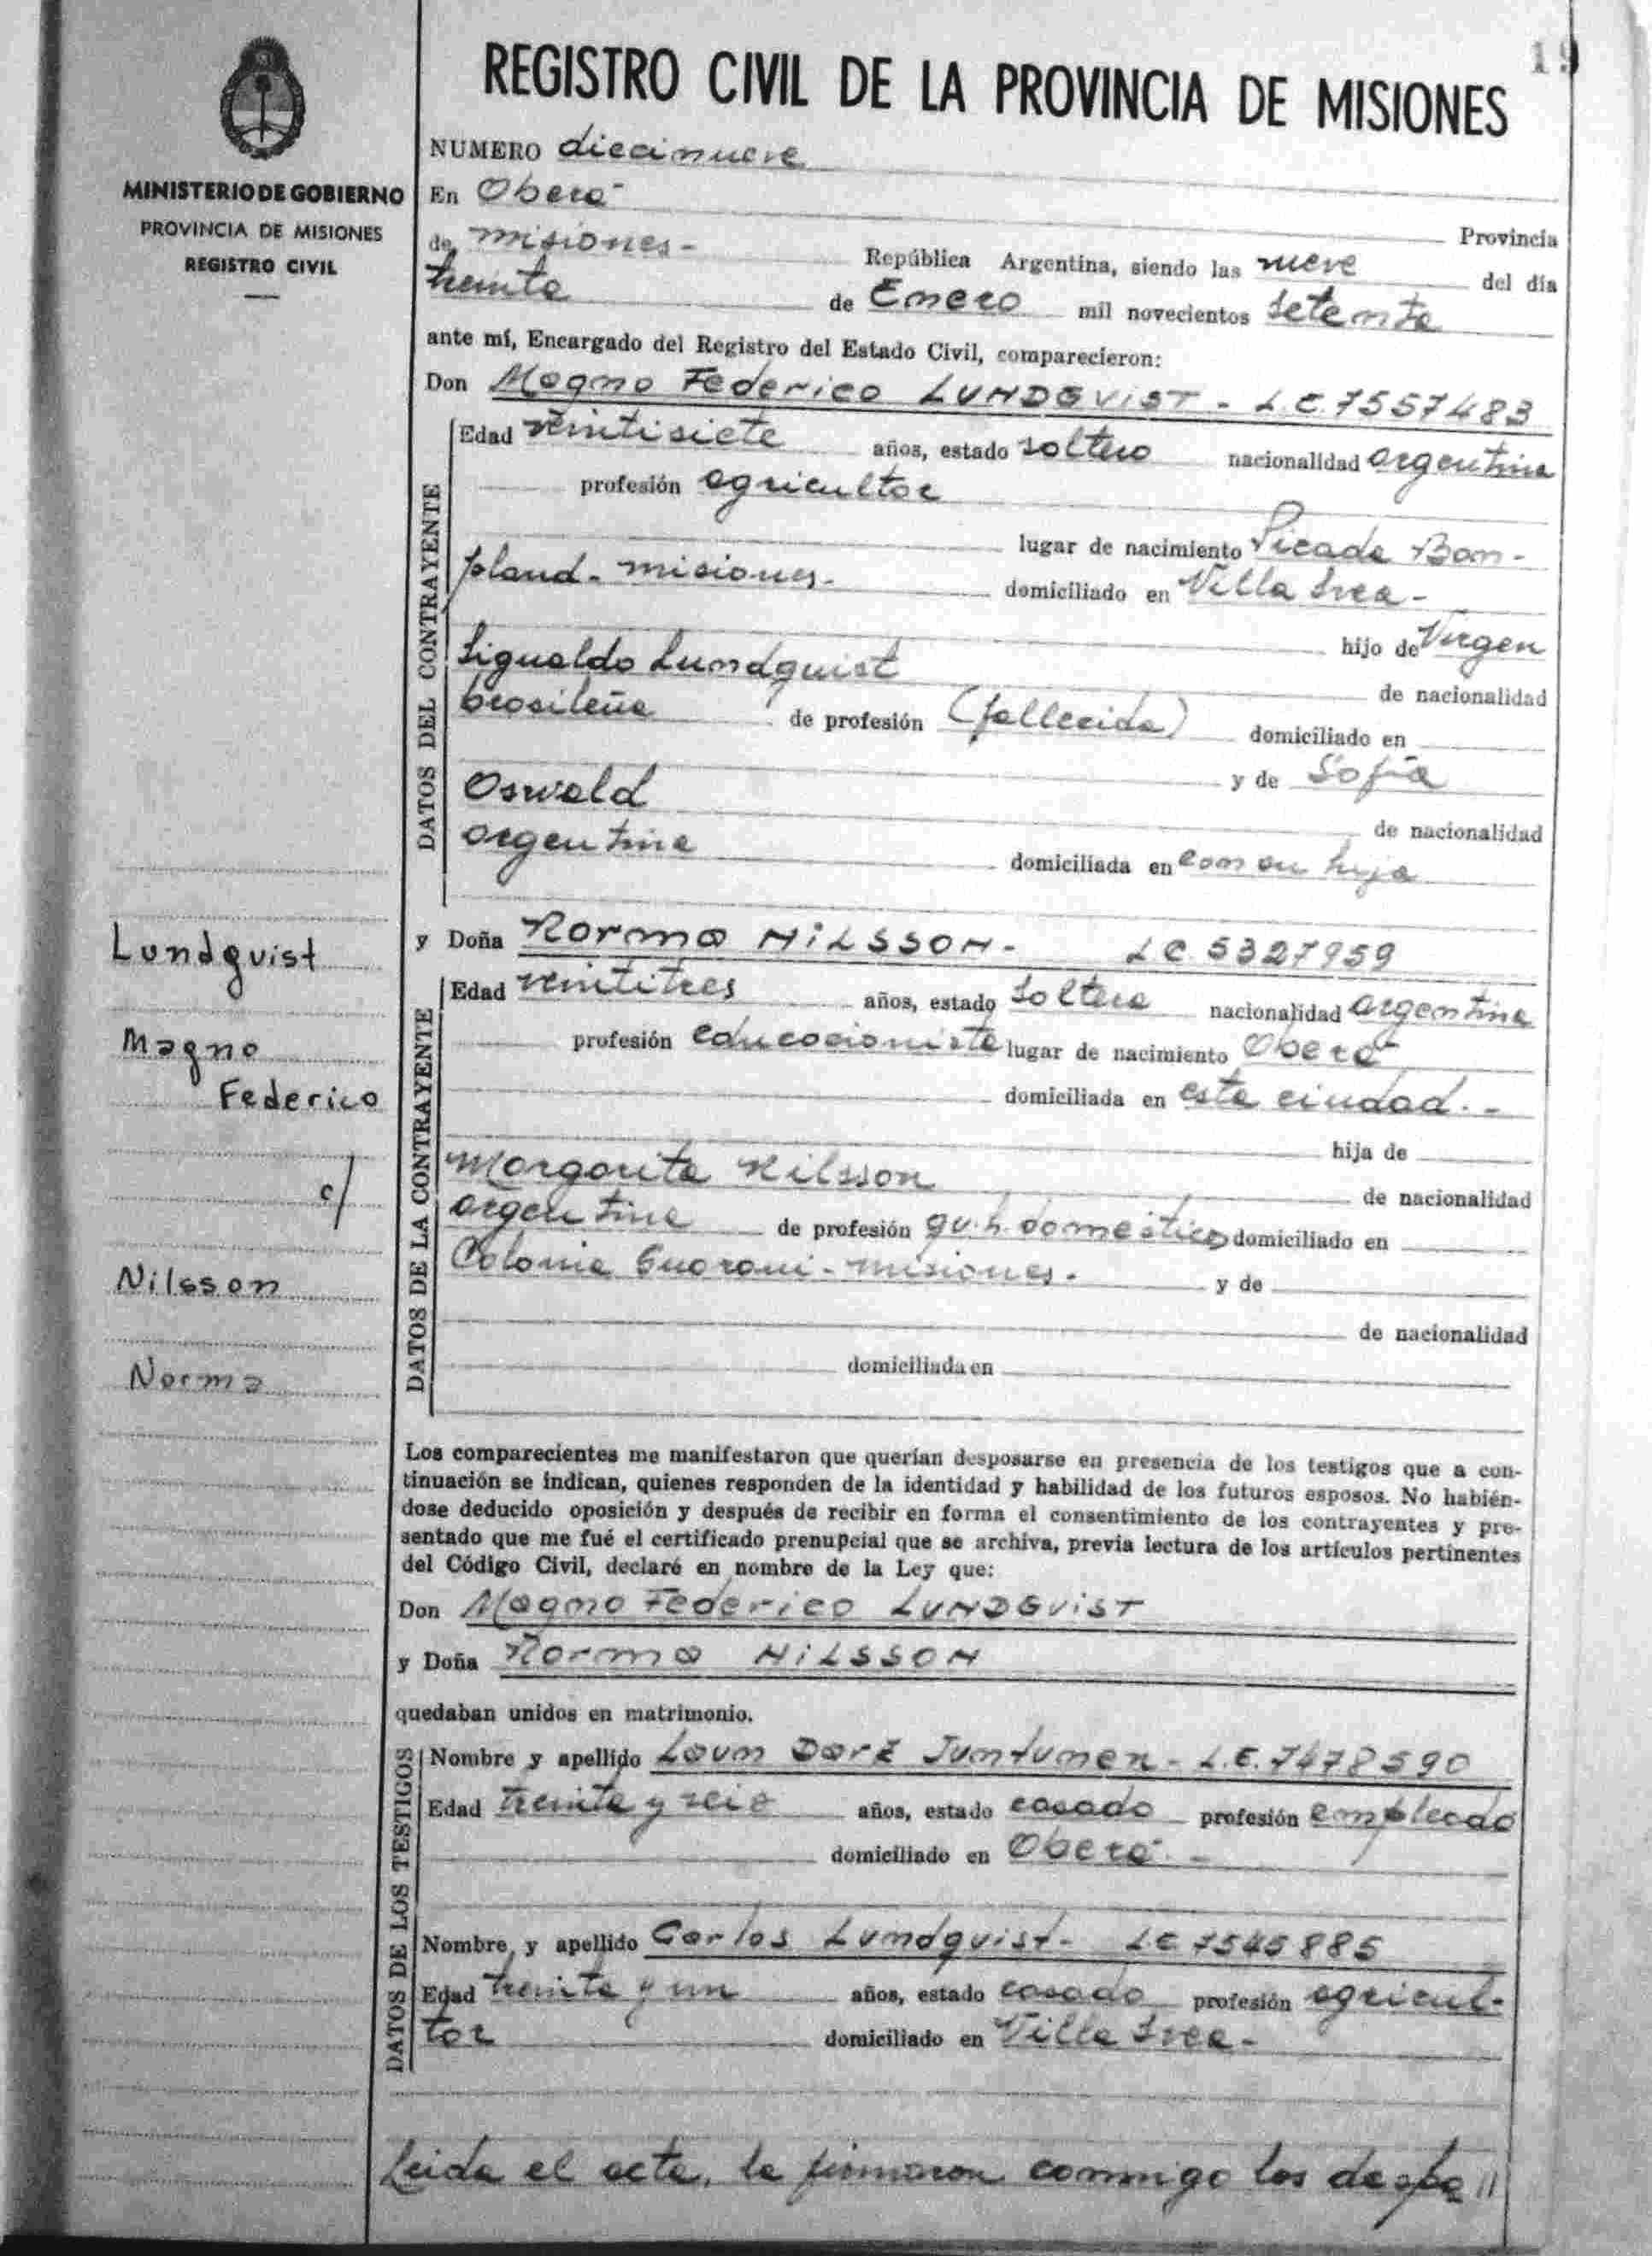 19
REGISTRO CIVIL DE LA PROVINCIA DE MISIONES
MINISTERIO DE GOBIERNO
PROVINCIA DE MISIONES
REGISTRO CIVIL
NUMERO diecinueve
En Oberá - Provincia
de misiones - República Argentina, siendo las nueve del día
treinta de Enero mil novecientos setenta
ante mí, Encargado del Registro del Estado Civil, comparecieron:
Don Magno Federico LUNDQUIST - L.E. 7557483
DATOS DEL CONTRAYENTE
Edad veintisiete años, estado soltero nacionalidad argentina
profesión agricultor
lugar de nacimiento Picada Bom-
pland - misiones - domiciliado en Villa Svea -
hijo de Virgen
Sigualdo Lundquist de nacionalidad
brasileña de profesión (fallecido) domiciliado en
y de Sofía
Oswald de nacionalidad
argentina domiciliada en con su hijo
y Doña Norma NILSSON - LC 5327959
DATOS DE LA CONTRAYENTE
Edad veintitres años, estado soltera nacionalidad argentina
profesión educacionista lugar de nacimiento Oberá
domiciliada en esta ciudad. -
hija de
Margarita Nilsson de nacionalidad
argentina de profesión qu.h. domésticos domiciliado en
Colonia Guaraní - misiones. y de
de nacionalidad
domiciliada en
Lundquist
Magno
Federico
c/
Nilsson
Norma
Los comparecientes me manifestaron que querían desposarse en presencia de los testigos que a con-
tinuación se indican, quienes responden de la identidad y habilidad de los futuros esposos. No habién-
dose deducido oposición y después de recibir en forma el consentimiento de los contrayentes y pre-
sentado que me fué el certificado prenupcial que se archiva, previa lectura de los artículos pertinentes
del Código Civil, declaré en nombre de la Ley que:
Don Magno Federico LUNDQUIST
y Doña Norma NILSSON
quedaban unidos en matrimonio.
DATOS DE LOS TESTIGOS
Nombre y apellido Juntunen - L.E. 7478590
Edad treinta y seis años, estado casado profesión empleado
domiciliado en Oberá. -
Nombre y apellido Carlos Lundquist - L.E 7545885
Edad treinta y un años, estado casado profesión agricul-
tor domiciliado en Villa Svea -
Leida el acta, la firmaron conmigo los despo //